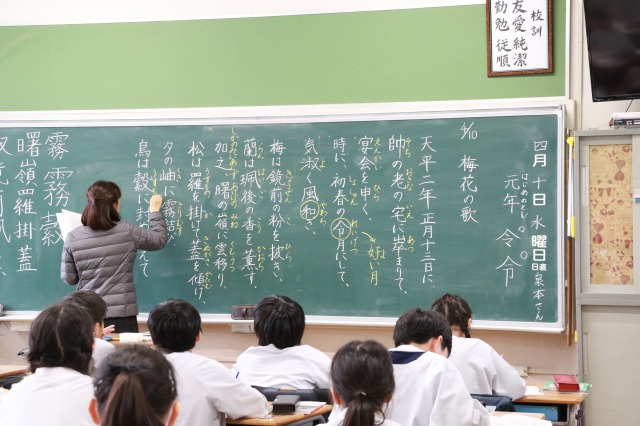 校訓
友愛 純潔
勤勉 従順
四月十日水曜日 日直 泉本さん
はじめのとし
元年 令 令
4/10 梅花の歌
天平二年正月十三日に、
帥の老の宅に萃まりて、
宴会を申く。
好い月
時に、初春の令月にして、
気淑く風和ぎ、
梅は鏡前の粉を披き、
蘭は珮後の香を薫す。
加之、曙の嶺に雲移り、
松は羅を掛けて蓋を傾け、
夕の岫に霧結び、
鳥は縠に封
えて
霧 霧
曙嶺羅掛蓋